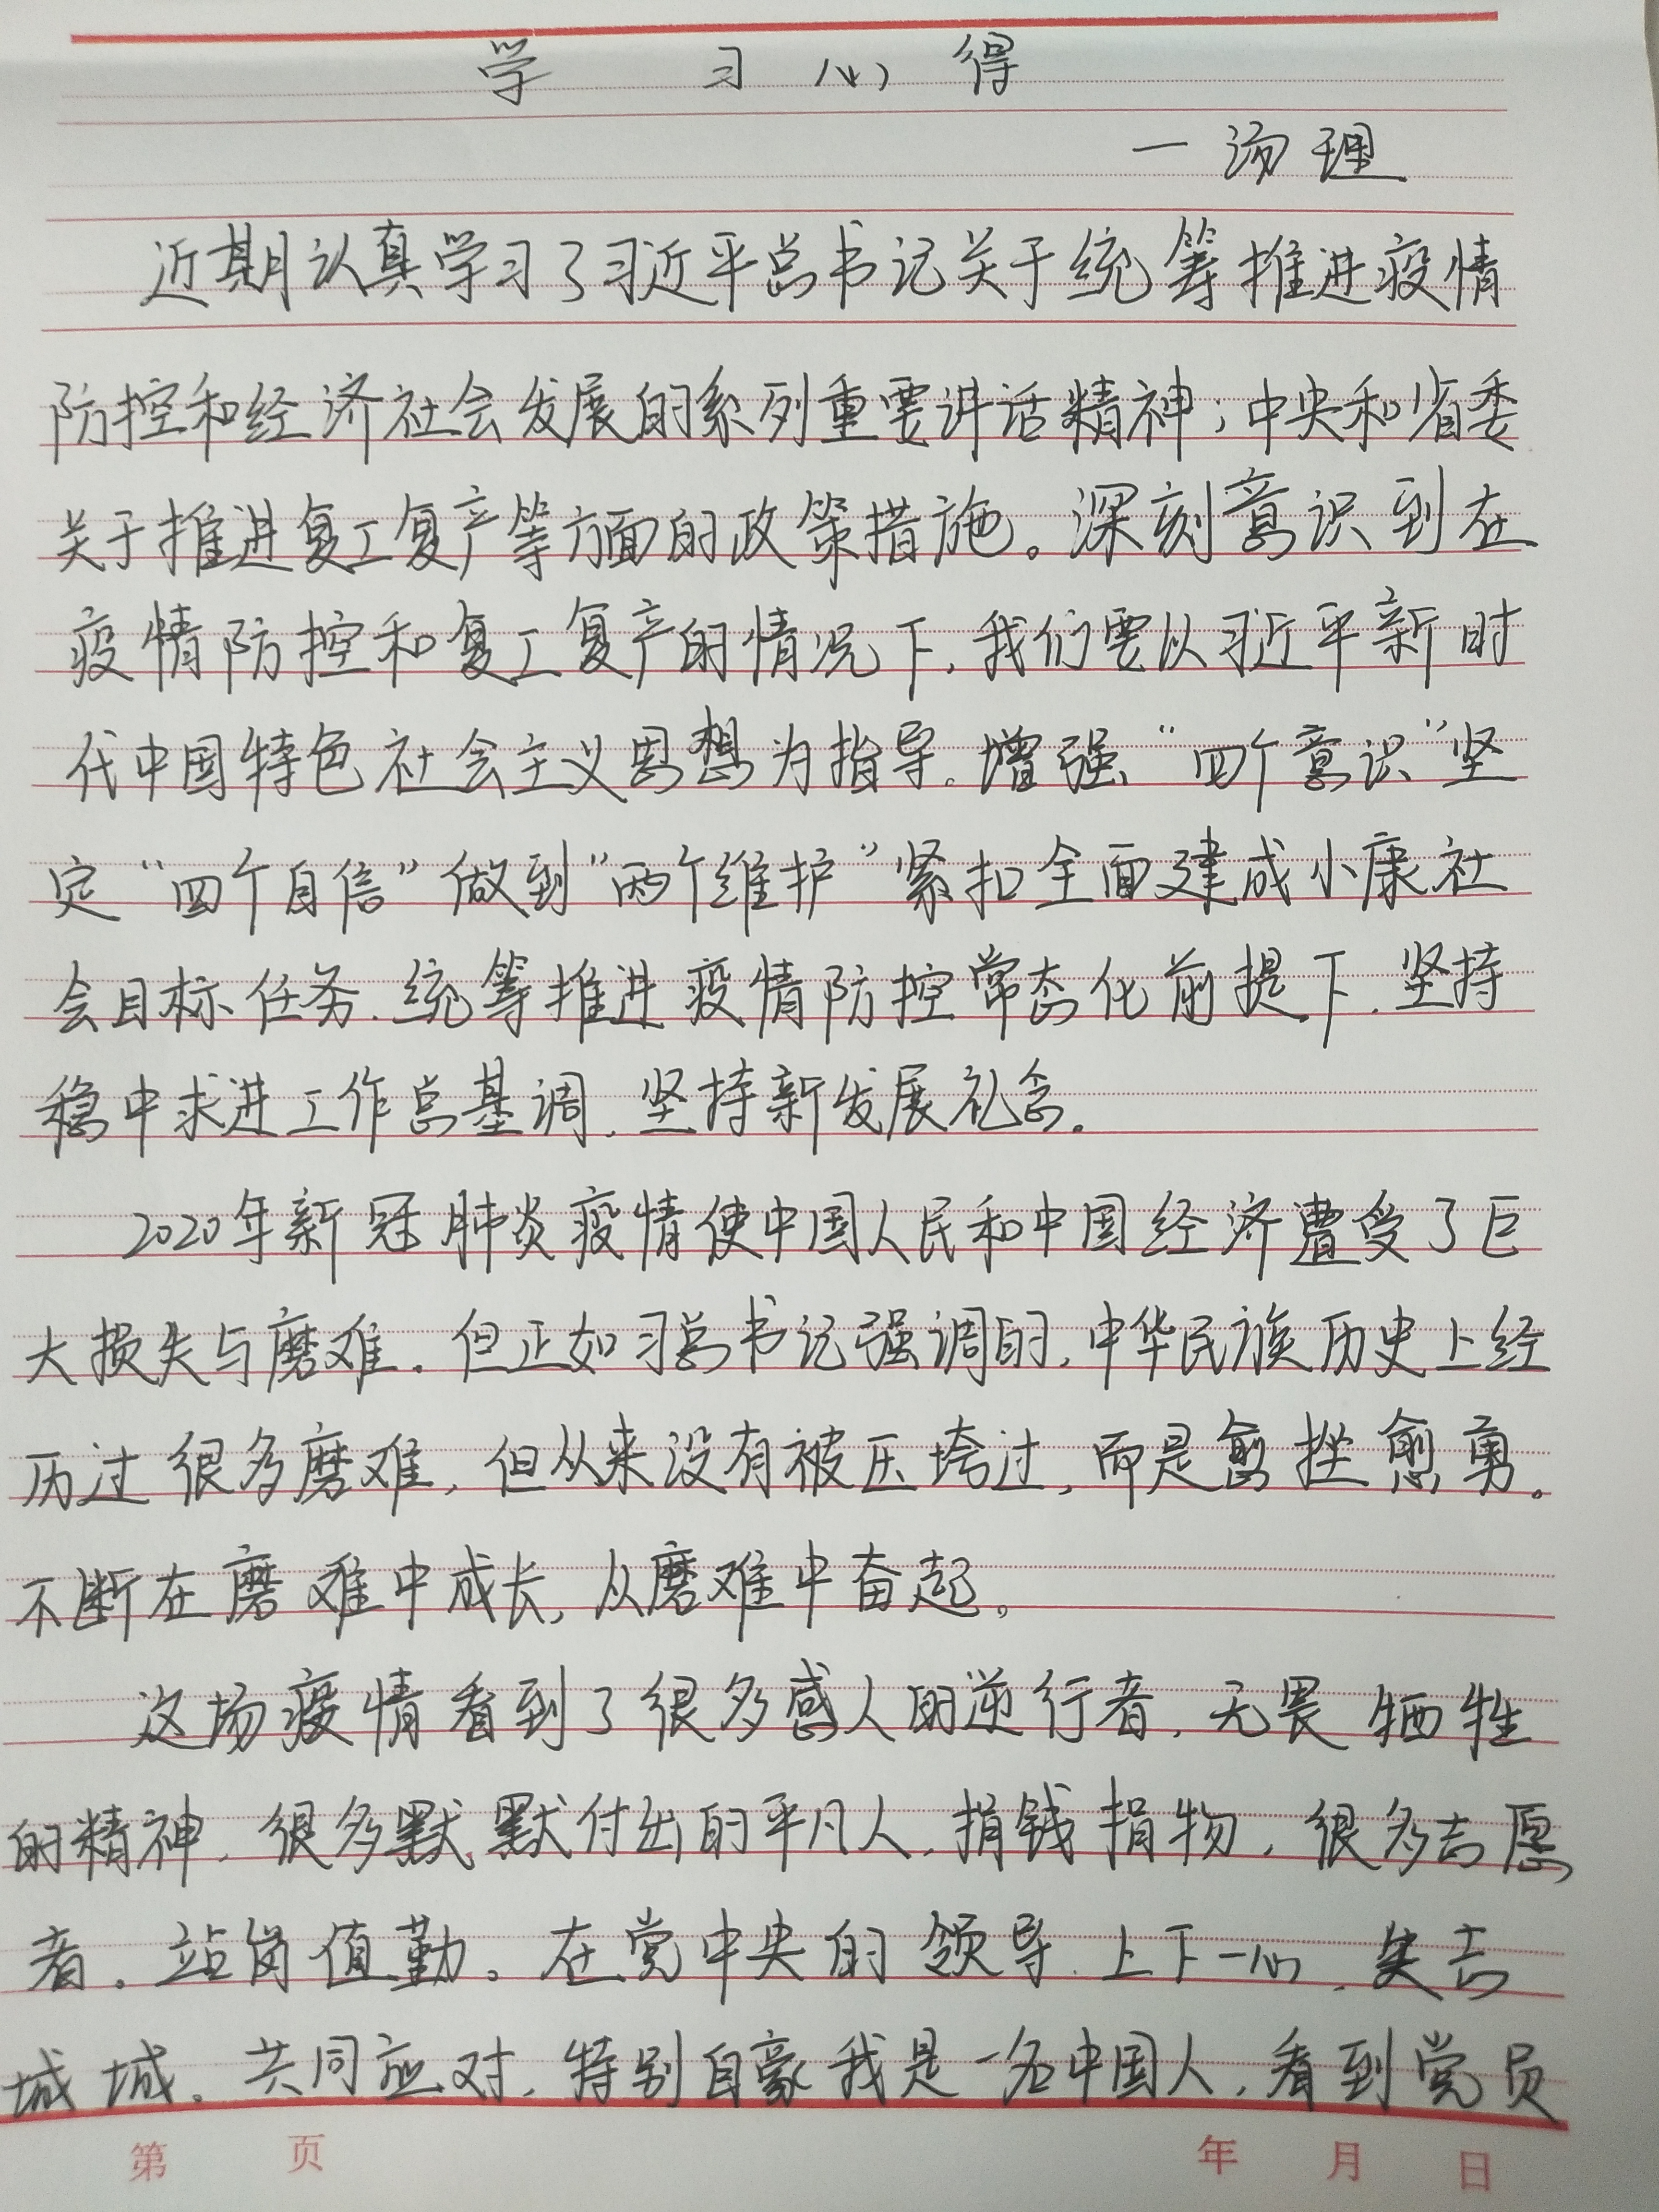 学习心得
一汤理
近期认真学习了习近平总书记关于统筹推进疫情
防控和经济社会发展的系列重要讲话精神;中央和省委
关于推进复工复产等方面的政策措施。深刻意识到在
疫情防控和复工复产的情况下,我们要以习近平新时
代中国特色社会主义思想为指导。增强“四个意识”坚
定“四个自信”做到“两个维护”紧扣全面建成小康社
会目标任务.统筹推进疫情防控常态化前提下.坚持
稳中求进工作总基调.坚持新发展礼念。
2020年新冠肺炎疫情使中国人民和中国经济遭受了巨
大损失与磨难.但正如习总书记强调的,中华民族历史上经
历过很多磨难,但从来没有被压垮过,而是愈挫愈勇。
不断在磨难中成长,从磨难中奋起。
这场疫情看到了很多感人的逆行者,无畏牺牲
的精神.很多默默付出的平凡人.捐钱捐物,很多志愿
者.站岗值勤。在党中央的领导.上下一心.失志
城城.共同应对.特别自豪我是一名中国人.看到党员
第 页 年 月 日